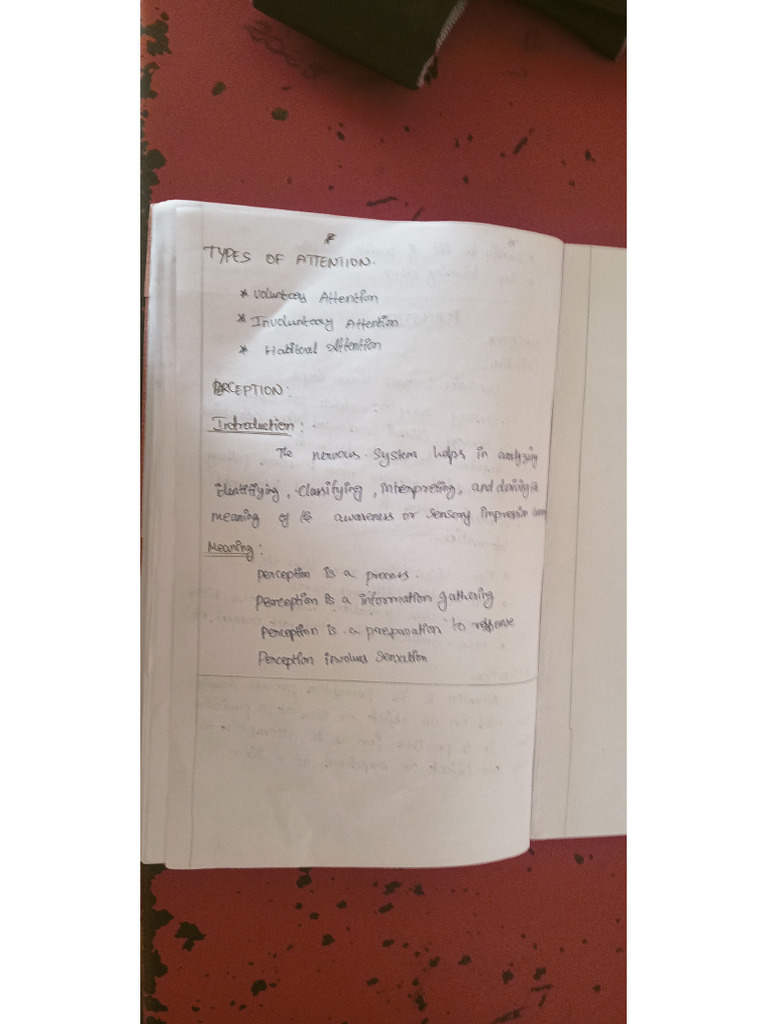 TYPES OF ATTENTION.
* Voluntary Attention
* Involuntary Attention
* Habitual Attention
PERCEPTION:
Introduction:
The nervous system helps in analyzing
identifying, classifying, interpreting, and deriving
meaning of awareness or sensory impression
Meaning:
perception is a process.
perception is a information gathering
perception is a preparation to response
Perception involves Sensation